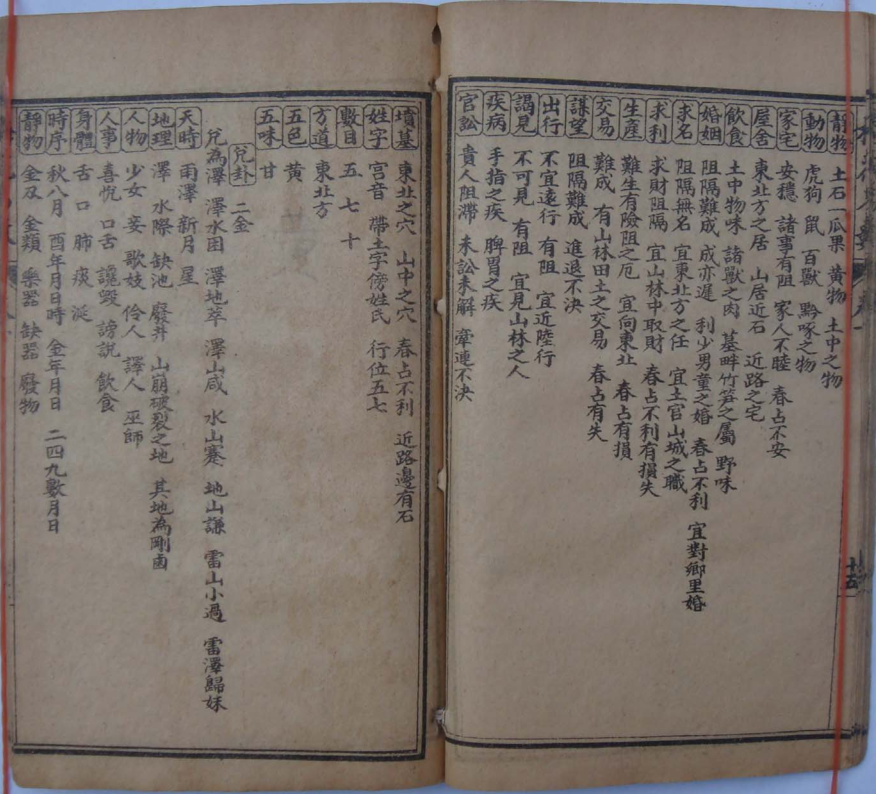 靜物 土石 瓜果 黄物 土中之物
動物 虎狗 鼠 百獸 黔啄之物
家宅 安穩 諸事有阻 家人不睦 春占不安
屋舍 東北方之居 山居近石 近路之宅
飲食 土中物味 諸獸之肉 墓畔竹笋之屬 野味
婚姻 阻隔難成 成亦遲 利少男童之婚 春占不利 宜對鄉里婚
求名 阻隔無名 宜東北方之任 宜土官山城之職
求利 求財阻隔 宜山林中取財 春占不利有損失
生產 難生有險阻之厄 宜向東北 春占有損
交易 難成 有山林田土之交易 春占有失
謀望 阻隔難成 進退不決
出行 不宜遠行 有阻 宜近陸行
謁見 不可見 有阻 宜見山林之人
疾病 手指之疾 脾胃之疾
官訟 貴人阻滯 未訟未解 牽連不決
十五
墳墓 東北之穴 山中之穴 春占不利 近路邊有石
姓字 宫音 帶土字傍姓氏 行位五七
數目 五 七 十
方道 東北方
五色 黄
五味 甘
兌卦 二金
兌為澤 澤水困 澤地萃 澤山咸 水山蹇 地山謙 雷山小過 雷澤歸妹
天時 雨澤 新月 星
地理 澤 水際 缺池 廢井 山崩破裂之地 其地為剛鹵
人物 少女 妾 歌妓 伶人 譯人 巫師
人事 喜悦 口舌 讒毀 謗説 飲食
身體 舌 口 肺 痰 涎
時序 秋八月 酉年月日時 金年月日 二四九數月日
靜物 金刄 金類 樂器 缺器 廢物